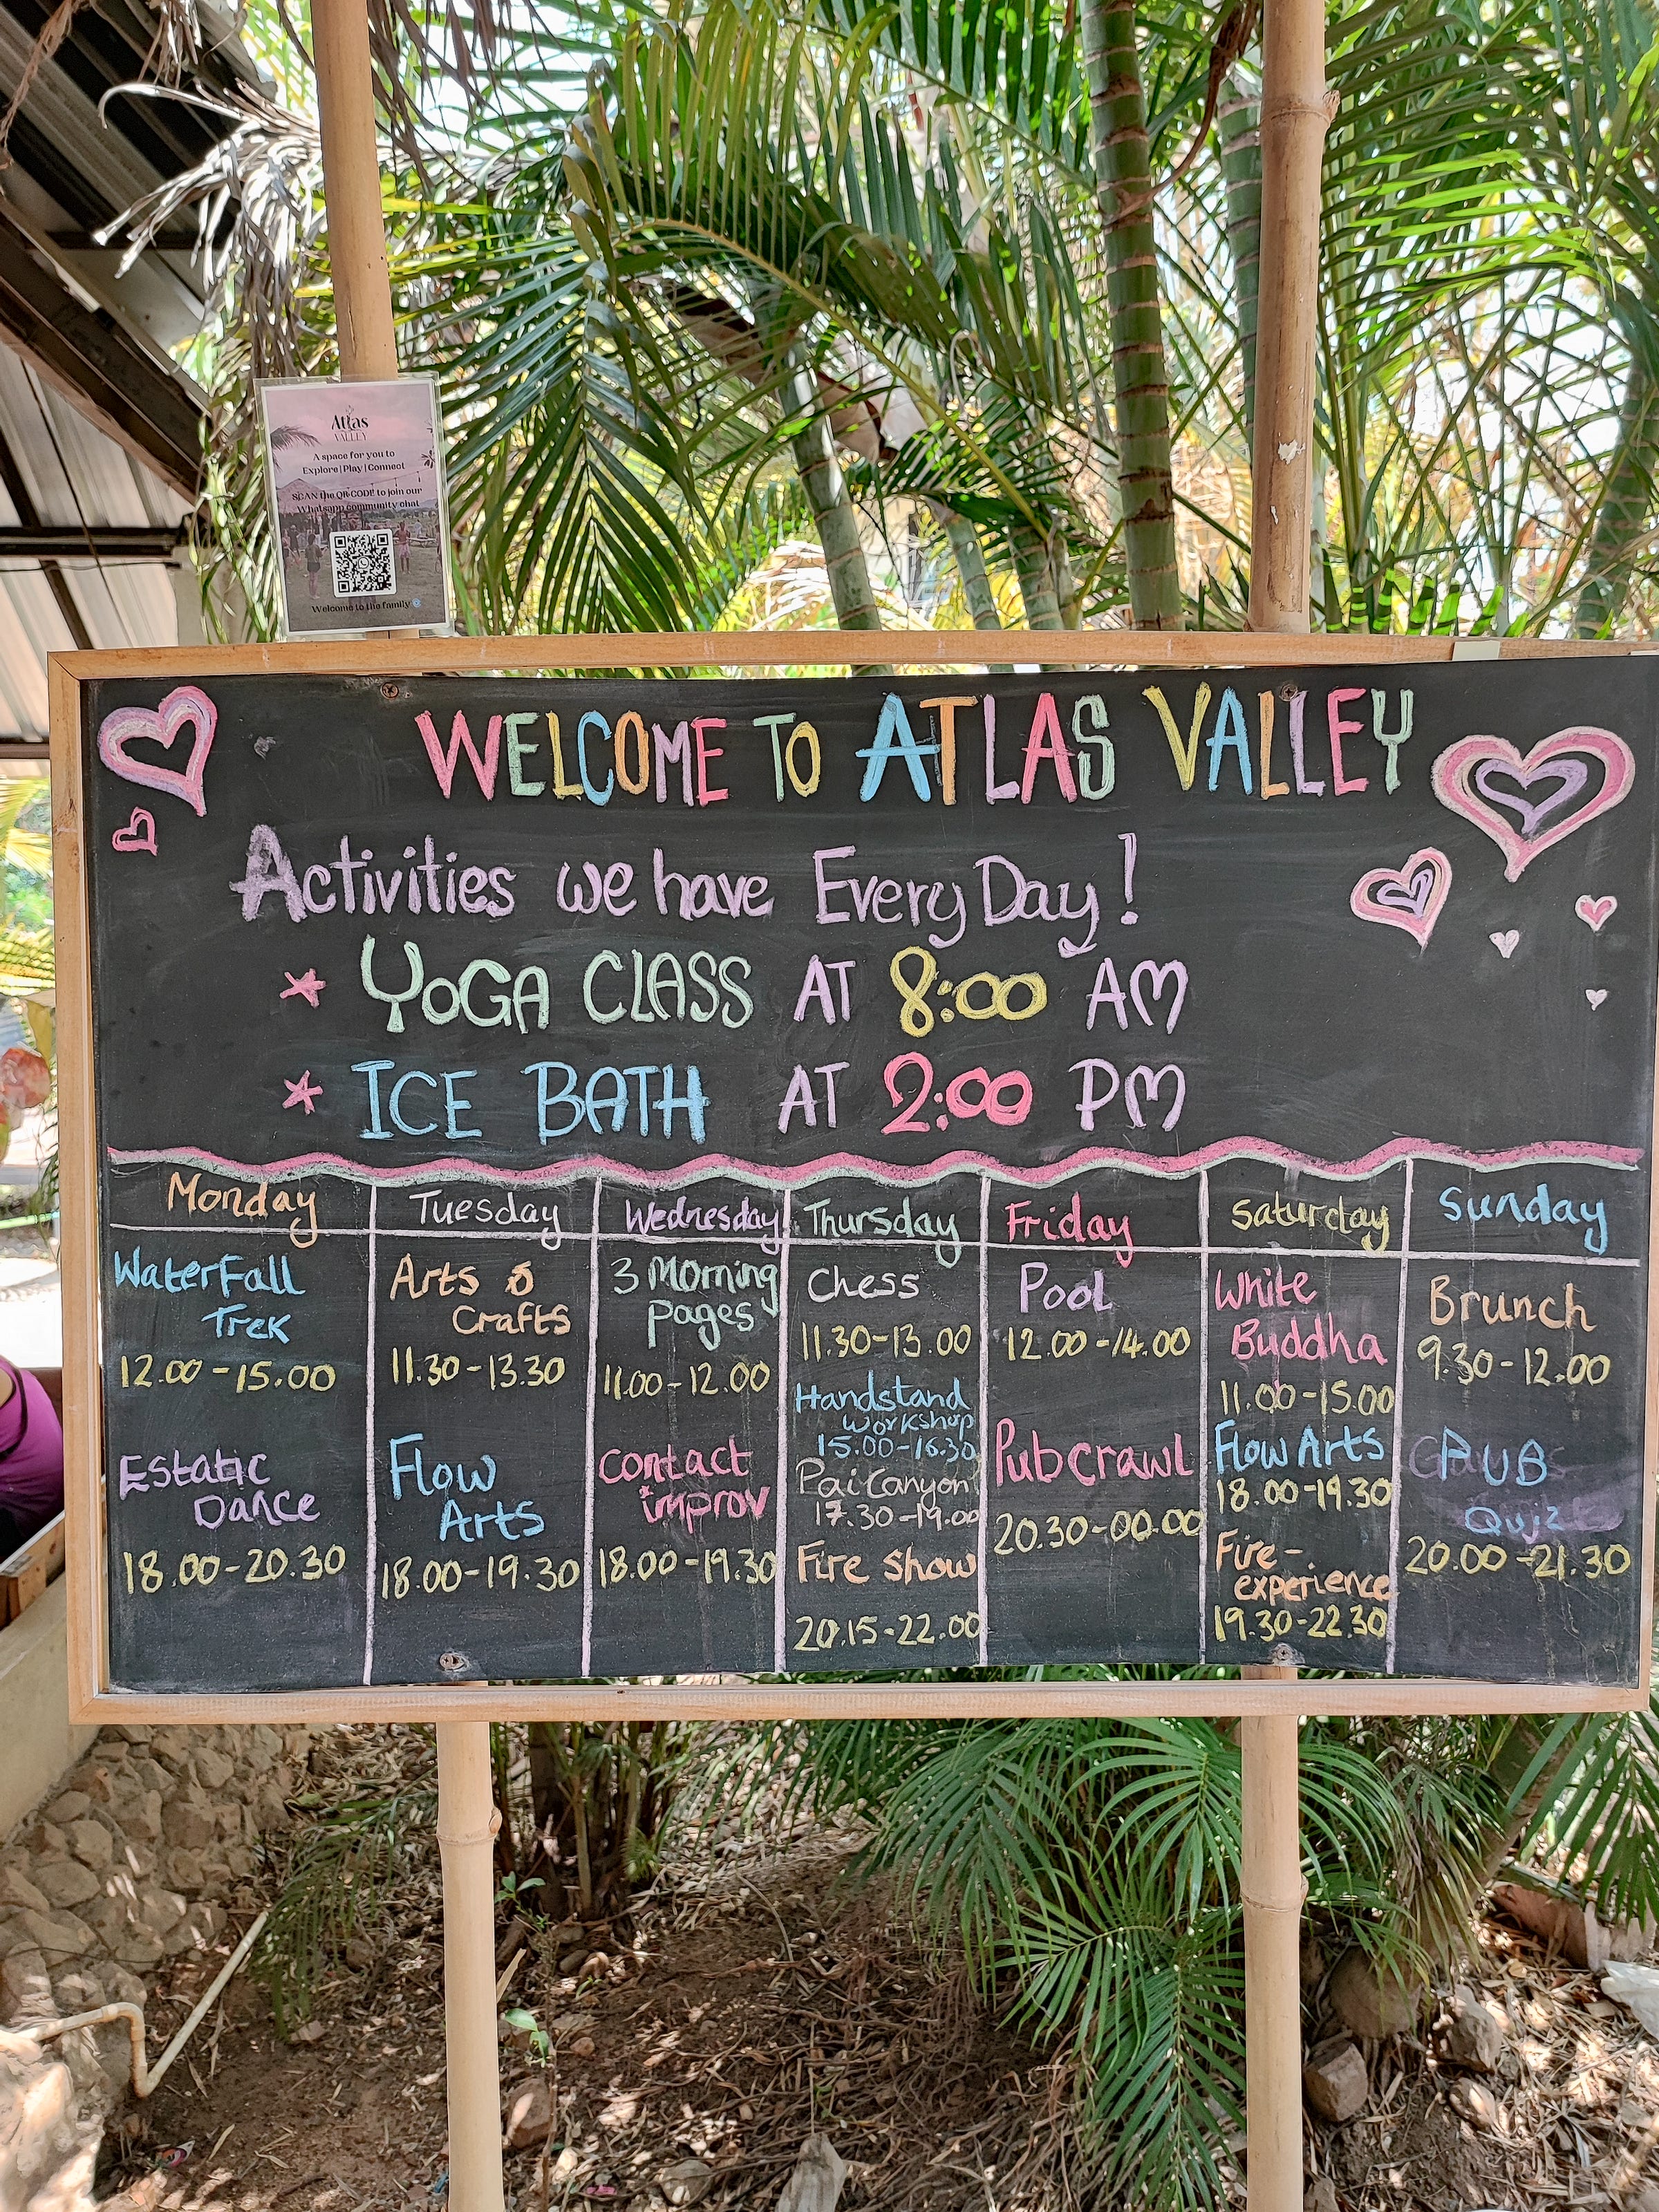 Atlas
VALLEY
A space for you to
Explore | Play | Connect
SCAN the QR CODE to join our
Whatsapp community chat
Welcome to the family
WELCOME TO ATLAS VALLEY
Activities we have Every Day!
* YOGA CLASS AT 8:00 AM
* ICE BATH AT 2:00 PM
Monday
Waterfall
Trek
12.00-15.00
Estatic
Dance
18.00-20.30
Tuesday
Arts &
Crafts
11.30-13.30
Flow
Arts
18.00-19.30
Wednesday
3 Morning
pages
11.00-12.00
contact
improv
18.00-19.30
Thursday
Chess
11.30-13.00
Handstand
workshop
15.00-16.30
Pai Canyon
17.30-19.00
Fire show
20.15-22.00
Friday
Pool
12.00-14.00
Pubcrawl
20.30-00.00
Saturday
White
Buddha
11.00-15.00
Flow Arts
18.00-19.30
Fire-
experience
19.30-22.30
Sunday
Brunch
9.30-12.00
PUB
Quiz
20.00-21.30